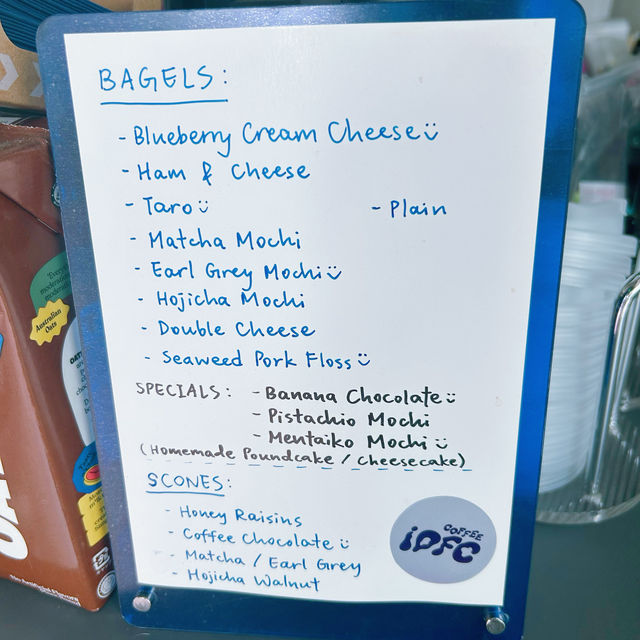 BAGELS:
- Blueberry Cream Cheese
- Ham & Cheese
- Taro - Plain
- Matcha Mochi
- Earl Grey Mochi
- Hojicha Mochi
- Double Cheese
- Seaweed Pork Floss
SPECIALS: - Banana Chocolate
- Pistachio Mochi
- Mentaiko Mochi
(Homemade Poundcake / cheesecake)
SCONES:
- Honey Raisins
- Coffee Chocolate
- Matcha / Earl Grey
- Hojicha Walnut
COFFEE
iDFC
Australian
Oats